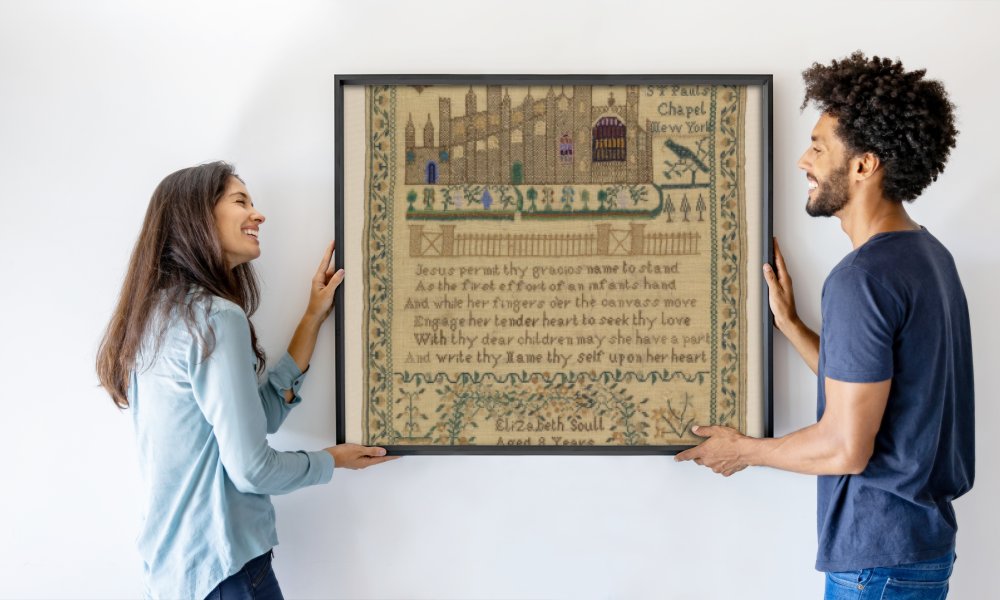 St Pauls
Chapel
New York
Jesus permit thy gracios name to stand
As the first effort of an infants hand
And while her fingers o'er the canvass move
Engage her tender heart to seek thy love
With thy dear children may she have a part
And write thy Name thy self upon her heart
Elizabeth Soull
Aged 8 Years